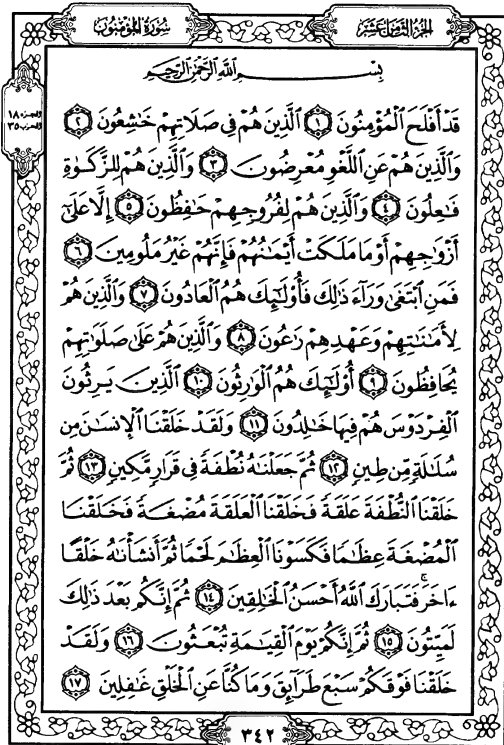 سُورَةُ المُؤْمِنُونَ
الجُزْءُ الثَّامِنَ عَشَرَ
الجزء ١٨
الحزب ٣٥
بِسْمِ ٱللَّهِ ٱلرَّحْمَٰنِ ٱلرَّحِيمِ
قَدْ أَفْلَحَ ٱلْمُؤْمِنُونَ ١ ٱلَّذِينَ هُمْ فِى صَلَاتِهِمْ خَٰشِعُونَ ٢
وَٱلَّذِينَ هُمْ عَنِ ٱللَّغْوِ مُعْرِضُونَ ٣ وَٱلَّذِينَ هُمْ لِلزَّكَوٰةِ
فَٰعِلُونَ ٤ وَٱلَّذِينَ هُمْ لِفُرُوجِهِمْ حَٰفِظُونَ ٥ إِلَّا عَلَىٰٓ
أَزْوَٰجِهِمْ أَوْ مَا مَلَكَتْ أَيْمَٰنُهُمْ فَإِنَّهُمْ غَيْرُ مَلُومِينَ ٦
فَمَنِ ٱبْتَغَىٰ وَرَآءَ ذَٰلِكَ فَأُو۟لَٰٓئِكَ هُمُ ٱلْعَادُونَ ٧ وَٱلَّذِينَ هُمْ
لِأَمَٰنَٰتِهِمْ وَعَهْدِهِمْ رَٰعُونَ ٨ وَٱلَّذِينَ هُمْ عَلَىٰ صَلَوَٰتِهِمْ
يُحَافِظُونَ ٩ أُو۟لَٰٓئِكَ هُمُ ٱلْوَٰرِثُونَ ١٠ ٱلَّذِينَ يَرِثُونَ
ٱلْفِرْدَوْسَ هُمْ فِيهَا خَٰلِدُونَ ١١ وَلَقَدْ خَلَقْنَا ٱلْإِنسَٰنَ مِن
سُلَٰلَةٍ مِّن طِينٍ ١٢ ثُمَّ جَعَلْنَٰهُ نُطْفَةً فِى قَرَارٍ مَّكِينٍ ١٣ ثُمَّ
خَلَقْنَا ٱلنُّطْفَةَ عَلَقَةً فَخَلَقْنَا ٱلْعَلَقَةَ مُضْغَةً فَخَلَقْنَا
ٱلْمُضْغَةَ عِظَٰمًا فَكَسَوْنَا ٱلْعِظَٰمَ لَحْمًا ثُمَّ أَنشَأْنَٰهُ خَلْقًا
ءَاخَرَ ۚ فَتَبَارَكَ ٱللَّهُ أَحْسَنُ ٱلْخَٰلِقِينَ ١٤ ثُمَّ إِنَّكُم بَعْدَ ذَٰلِكَ
لَمَيِّتُونَ ١٥ ثُمَّ إِنَّكُمْ يَوْمَ ٱلْقِيَٰمَةِ تُبْعَثُونَ ١٦ وَلَقَدْ
خَلَقْنَا فَوْقَكُمْ سَبْعَ طَرَآئِقَ وَمَا كُنَّا عَنِ ٱلْخَلْقِ غَٰفِلِينَ ١٧
٣٤٢